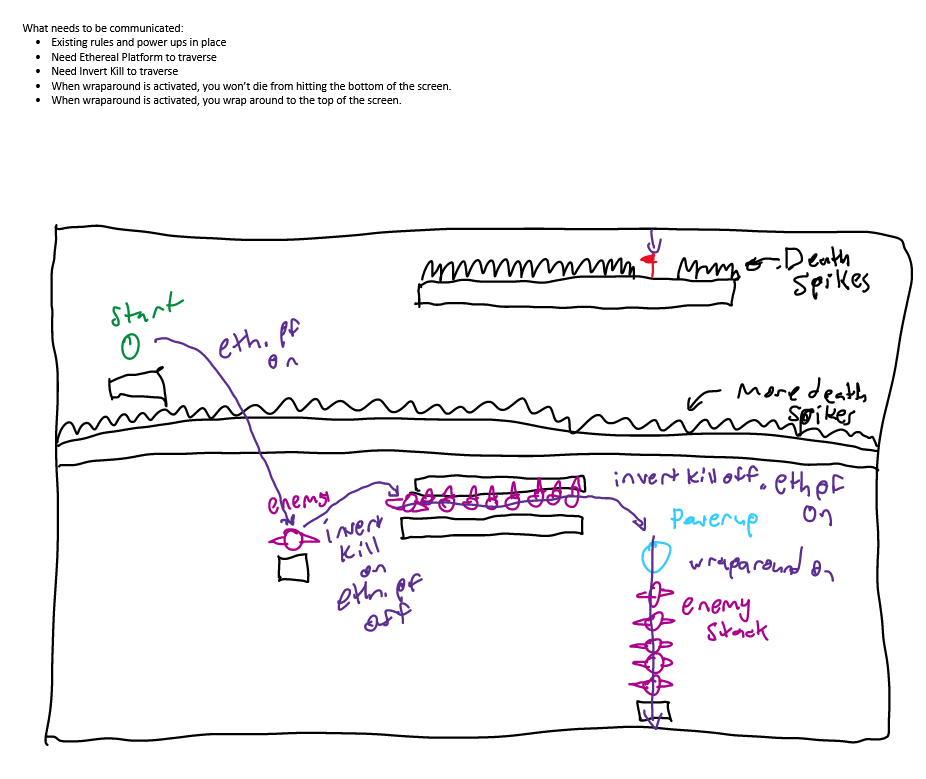 What needs to be communicated:
• Existing rules and power ups in place
• Need Ethereal Platform to traverse
• Need Invert Kill to traverse
• When wraparound is activated, you won't die from hitting the bottom of the screen.
• When wraparound is activated, you wrap around to the top of the screen.
Death
Spikes
start
eth. pf
on
More death
spikes
enemy
invert kill off. eth pf
on
invert
kill
on
eth. pf
off
Powerup
wraparound on
enemy
stack